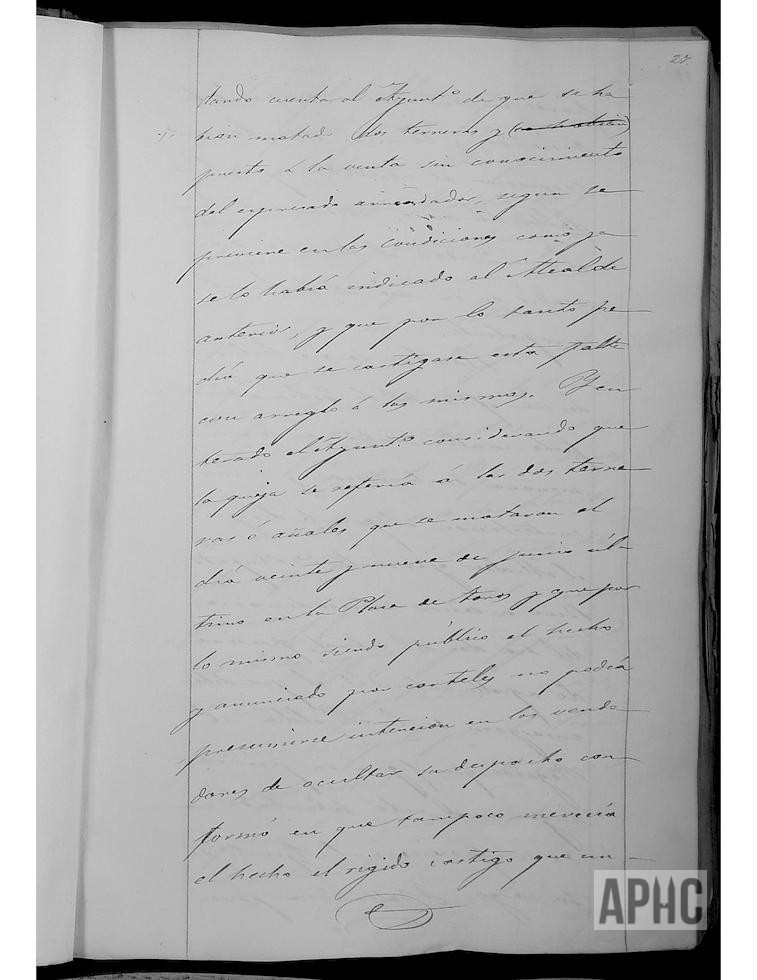 27.
tando cuenta al Ayunt.º de que se ha
bian matado dos terneras y (se habian)
puesto á la venta sin conocimiento
del expresado arrendador, segun se
previene en las condiciones como ya
se lo habia indicado al Alcalde
anterior, y que por lo tanto pe
dia que se castigase esta falta
con arreglo á las mismas. Y en
terado el Ayunt.º considerando que
la queja se referia á las dos terne
ras ó añales que se mataron el
dia veinte y nueve de junio úl-
timo en la Plaza de toros y que por
lo mismo siendo público el hecho
y anunciado por carteles no podia
presumirse intencion en los vende
dores de ocultar su despacho con
formó en que tampoco merecia
el hecho el rigido castigo que en-
APHC